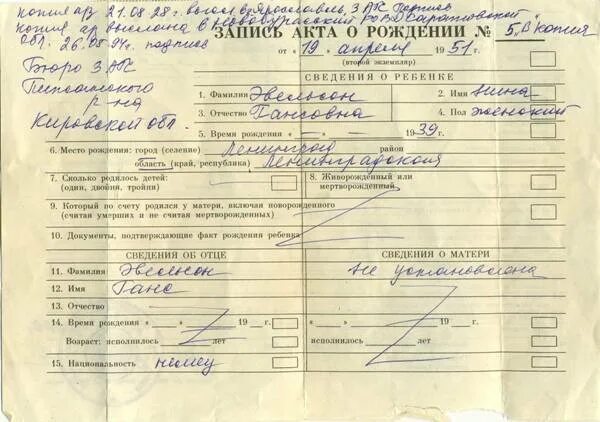 копия а/з 21.08.28 г. высл. в г. Ярославль, З АГС подпись
копия а/з выслана в Новобурасский РОВД Саратовской
обл. 26.08.94г. подпись
Бюро ЗАГС
р-на
Кировской обл.
ЗАПИСЬ АКТА О РОЖДЕНИИ № 5, В копия
от « 19 » апреля 1951 г.
(второй экземпляр)
СВЕДЕНИЯ О РЕБЕНКЕ
1. Фамилия Эвельсон 2. Имя Нина
3. Отчество Гансовна 4. Пол женский
5. Время рождения « — » — 1939 г.
6. Место рождения: город (селение) Ленинград район
область (край, республика) Ленинградская
7. Сколько родилось детей: (один, двойня, тройня)
8. Живорожденный или мертворожденный
9. Который по счету родился у матери, включая новорожденного
(считая умерших и не считая мертворожденных)
10. Документы, подтверждающие факт рождения ребенка
СВЕДЕНИЯ ОБ ОТЦЕ СВЕДЕНИЯ О МАТЕРИ
11. Фамилия Эвельсон не установлена
12. Имя Ганс
13. Отчество
14. Время рождения « » 19 г. « » 19 г.
Возраст: исполнилось лет исполнилось лет
15. Национальность немец